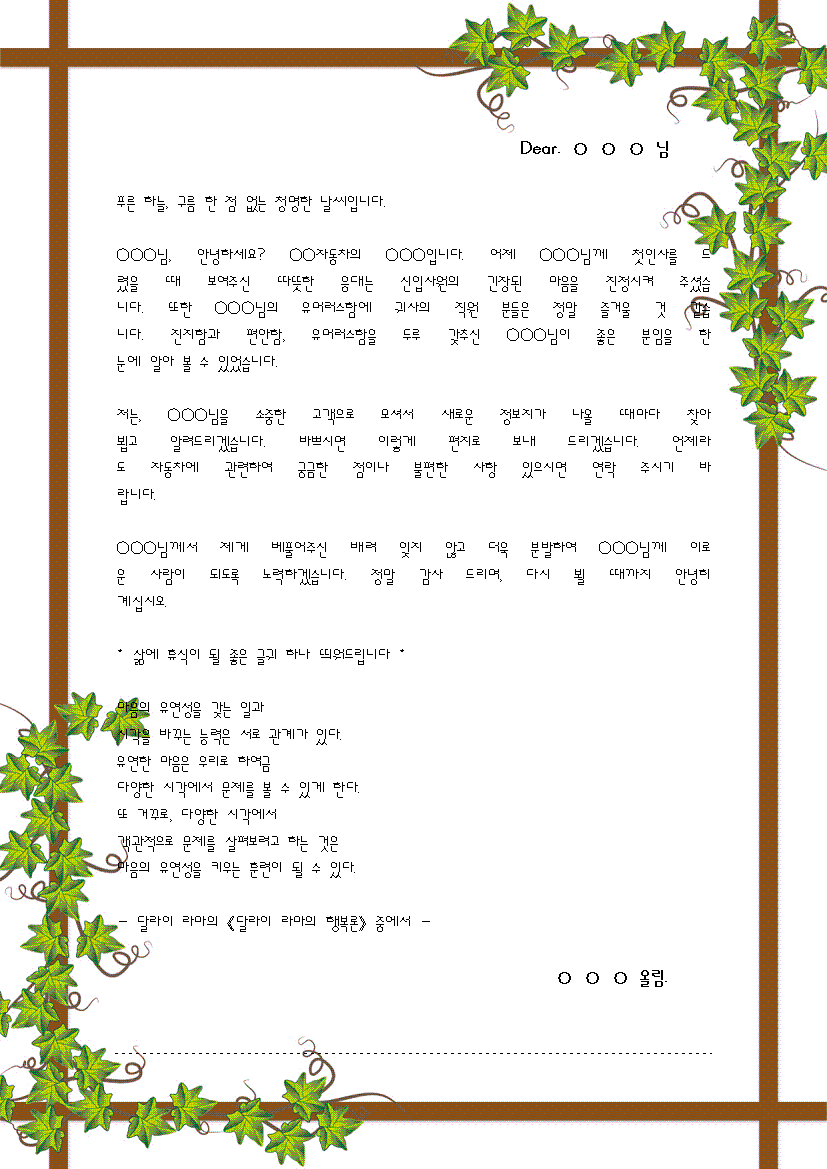 Dear. ○ ○ ○ 님
푸른 하늘, 구름 한 점 없는 청명한 날씨입니다.
○○○님, 안녕하세요? ○○자동차의 ○○○입니다. 어제 ○○○님께 첫인사를 드
렸을 때 보여주신 따뜻한 응대는 신입사원의 긴장된 마음을 진정시켜 주셨습
니다. 또한 ○○○님의 유머러스함에 귀사의 직원 분들은 정말 즐거울 것 같습
니다. 진지함과 편안함, 유머러스함을 두루 갖추신 ○○○님이 좋은 분임을 한
눈에 알아 볼 수 있었습니다.
저는, ○○○님을 소중한 고객으로 모셔서 새로운 정보지가 나올 때마다 찾아
뵙고 알려드리겠습니다. 바쁘시면 이렇게 편지로 보내 드리겠습니다. 언제라
도 자동차에 관련하여 궁금한 점이나 불편한 사항 있으시면 연락 주시기 바
랍니다.
○○○님께서 제게 베풀어주신 배려 잊지 않고 더욱 분발하여 ○○○님께 이로
운 사람이 되도록 노력하겠습니다. 정말 감사 드리며, 다시 뵐 때까지 안녕히
계십시오.
* 삶에 휴식이 될 좋은 글귀 하나 띄워드립니다 *
마음의 유연성을 갖는 일과
시각을 바꾸는 능력은 서로 관계가 있다.
유연한 마음은 우리로 하여금
다양한 시각에서 문제를 볼 수 있게 한다.
또 거꾸로, 다양한 시각에서
객관적으로 문제를 살펴보려고 하는 것은
마음의 유연성을 키우는 훈련이 될 수 있다.
- 달라이 라마의 《달라이 라마의 행복론》 중에서 -
○ ○ ○ 올림.